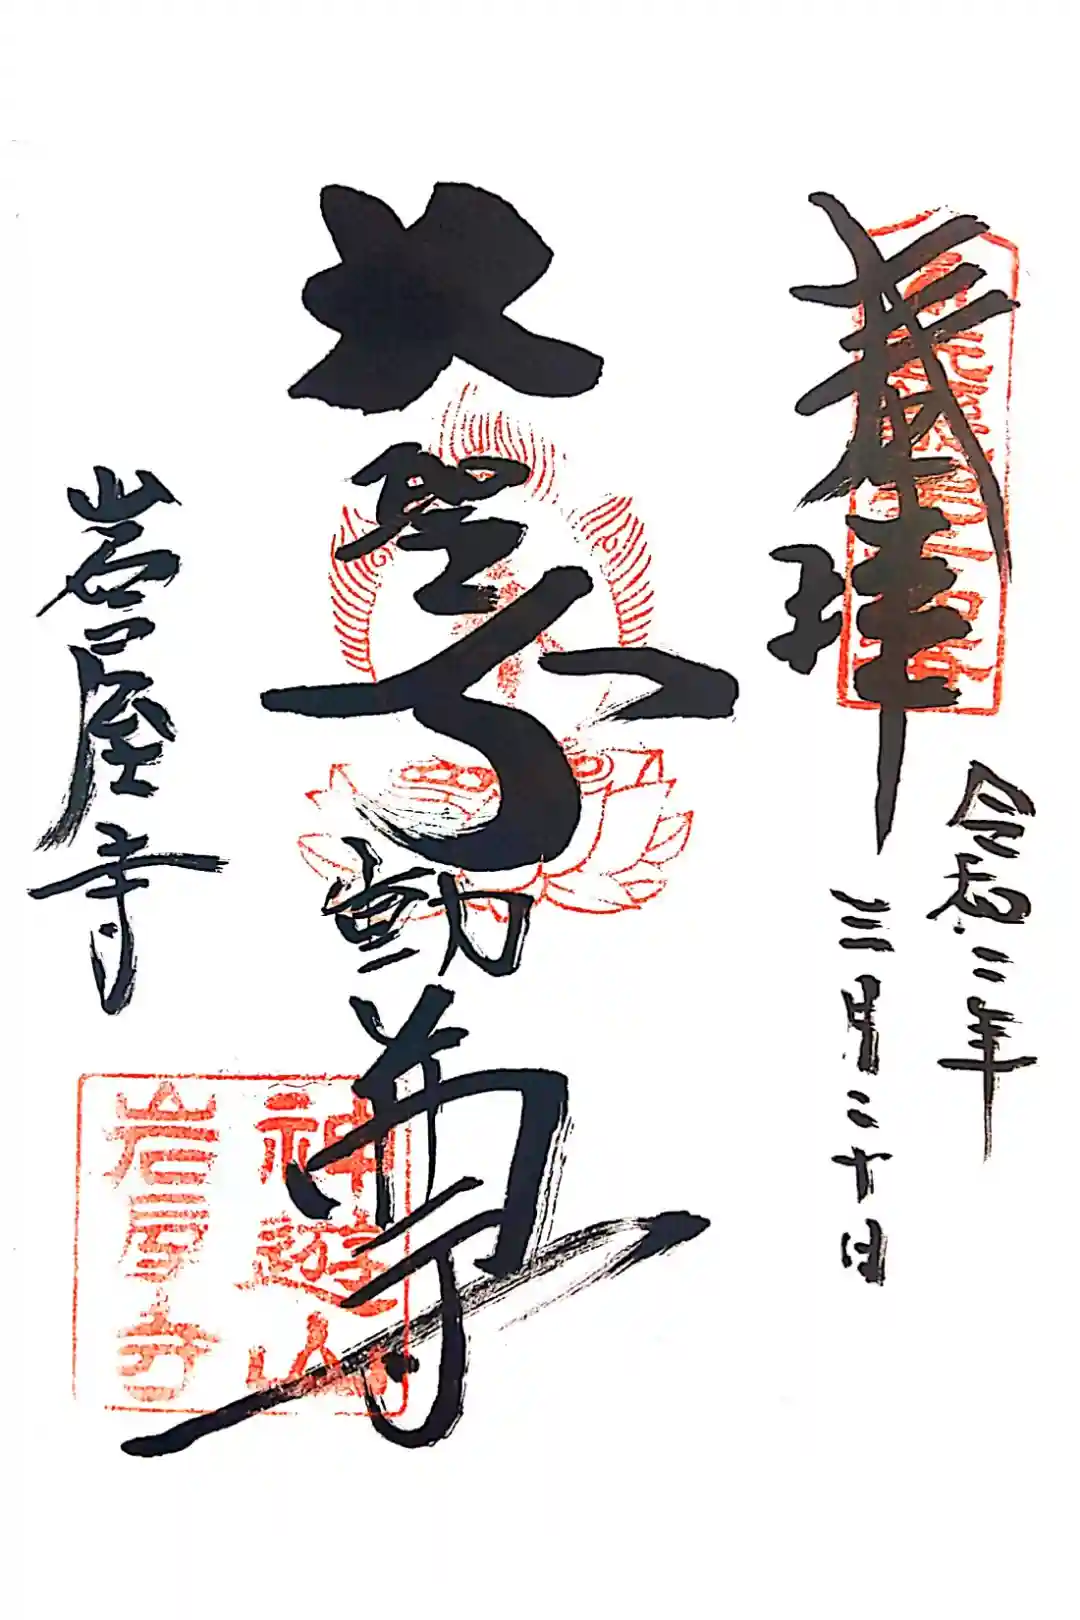 令和二年
三月二十日
大聖不動尊
岩屋寺
神遊山
岩屋寺